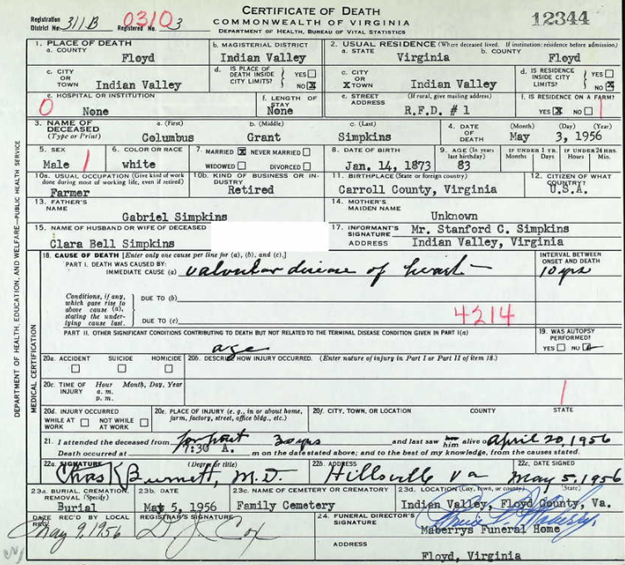 CERTIFICATE OF DEATH
COMMONWEALTH OF VIRGINIA
DEPARTMENT OF HEALTH, BUREAU OF VITAL STATISTICS
Registration District No. 311B
Registered No. 3
0310
12344
1. PLACE OF DEATH
a. COUNTY Floyd
b. MAGISTERIAL DISTRICT Indian Valley
2. USUAL RESIDENCE (Where deceased lived. If institution: residence before admission)
a. STATE Virginia
b. COUNTY Floyd
c. CITY OR TOWN Indian Valley
d. IS PLACE OF DEATH INSIDE CITY LIMITS? YES NO X
c. CITY OR X TOWN Indian Valley
d. IS RESIDENCE INSIDE CITY LIMITS? YES NO X
0
e. HOSPITAL OR INSTITUTION None
f. LENGTH OF STAY None
e. STREET ADDRESS (If rural, give mailing address) R.F.D. # 1
f. IS RESIDENCE ON A FARM? YES X NO
3. NAME OF DECEASED (Type or Print)
a. (First) Columbus
b. (Middle) Grant
c. (Last) Simpkins
4. DATE OF DEATH (Month) (Day) (Year) May 3, 1956
5. SEX Male
6. COLOR OR RACE white
7. MARRIED X NEVER MARRIED
WIDOWED DIVORCED
8. DATE OF BIRTH Jan. 14, 1873
9. AGE (In years last birthday) 83
IF UNDER 1 YR. Months Days
IF UNDER 24 HRS. Hours Min.
10a. USUAL OCCUPATION (Give kind of work done during most of working life, even if retired) Farmer
10b. KIND OF BUSINESS OR INDUSTRY Retired
11. BIRTHPLACE (State or foreign country) Carroll County, Virginia
12. CITIZEN OF WHAT COUNTRY? U.S.A.
13. FATHER'S NAME Gabriel Simpkins
14. MOTHER'S MAIDEN NAME Unknown
15. NAME OF HUSBAND OR WIFE OF DECEASED Clara Bell Simpkins
17. INFORMANT'S SIGNATURE Mr. Stanford C. Simpkins
ADDRESS Indian Valley, Virginia
18. CAUSE OF DEATH [Enter only one cause per line for (a), (b), and (c).]
INTERVAL BETWEEN ONSET AND DEATH
PART I. DEATH WAS CAUSED BY:
IMMEDIATE CAUSE (a) Valvular disease of heart 10 yrs
Conditions, if any, which gave rise to above cause (a), stating the underlying cause last.
DUE TO (b)
DUE TO (c)
4214
PART II. OTHER SIGNIFICANT CONDITIONS CONTRIBUTING TO DEATH BUT NOT RELATED TO THE TERMINAL DISEASE CONDITION GIVEN IN PART I(a)
age
19. WAS AUTOPSY PERFORMED? YES NO
20a. ACCIDENT SUICIDE HOMICIDE
20b. DESCRIBE HOW INJURY OCCURRED. (Enter nature of injury in Part I or Part II of item 18.)
20c. TIME OF INJURY Hour a. m. p. m. Month, Day, Year
20d. INJURY OCCURRED WHILE AT WORK NOT WHILE AT WORK
20e. PLACE OF INJURY (e. g., in or about home, farm, factory, street, office bldg., etc.)
20f. CITY, TOWN, OR LOCATION COUNTY STATE
21. I attended the deceased from for past 3 yrs and last saw him alive on April 20, 1956
Death occurred at 7:30 A. m on the date stated above; and to the best of my knowledge, from the causes stated.
22a. SIGNATURE (Degree or title) Chas K Burnett, M.D.
22b. ADDRESS Hillsville Va
22c. DATE SIGNED May 5, 1956
23a. BURIAL, CREMATION, REMOVAL (Specify) Burial
23b. DATE May 5, 1956
23c. NAME OF CEMETERY OR CREMATORY Family Cemetery
23d. LOCATION (City, town, or county) (State) Indian Valley, Floyd County, Va.
DATE REC'D BY LOCAL REG. May 9, 1956
REGISTRAR'S SIGNATURE D. J. Cox
24. FUNERAL DIRECTOR'S SIGNATURE
Maberrys Funeral Home
24. ADDRESS
Floyd, Virginia
DEPARTMENT OF HEALTH, EDUCATION, AND WELFARE—PUBLIC HEALTH SERVICE
MEDICAL CERTIFICATION